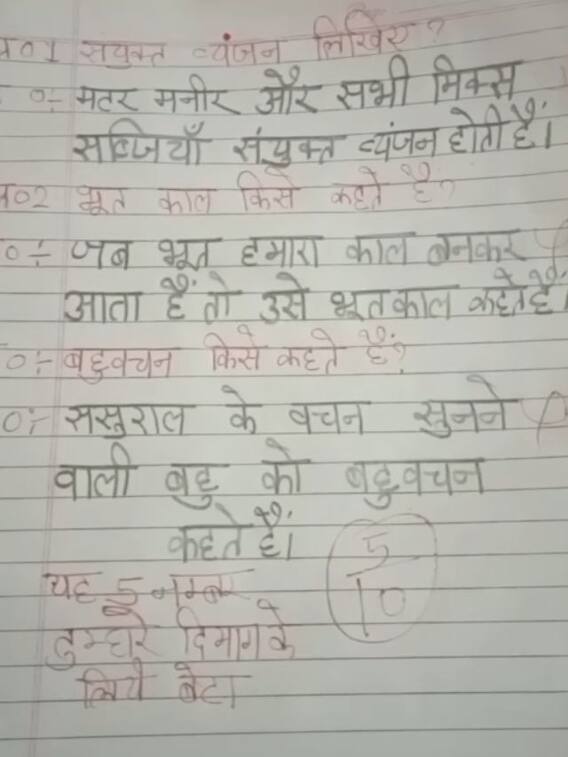 प्र०1 सयुक्त व्यंजन लिखिए?
०÷ मटर मनीर और सभी मिक्स
सब्जियाँ संयुक्त व्यंजन होती हैं।
प्र०2 भूत काल किसे कहते है?
०÷ जब भूत हमारा काल बनकर
आता हैं तो उसे भूतकाल कहते है।
०÷ बहुवचन किसे कहते हैं?
०÷ ससुराल के वचन सुनने
वाली बहु को बहुवचन
कहते हैं।
5
10
यह 5 नम्बर
तुम्हारे दिमाग के
लिये बेटा